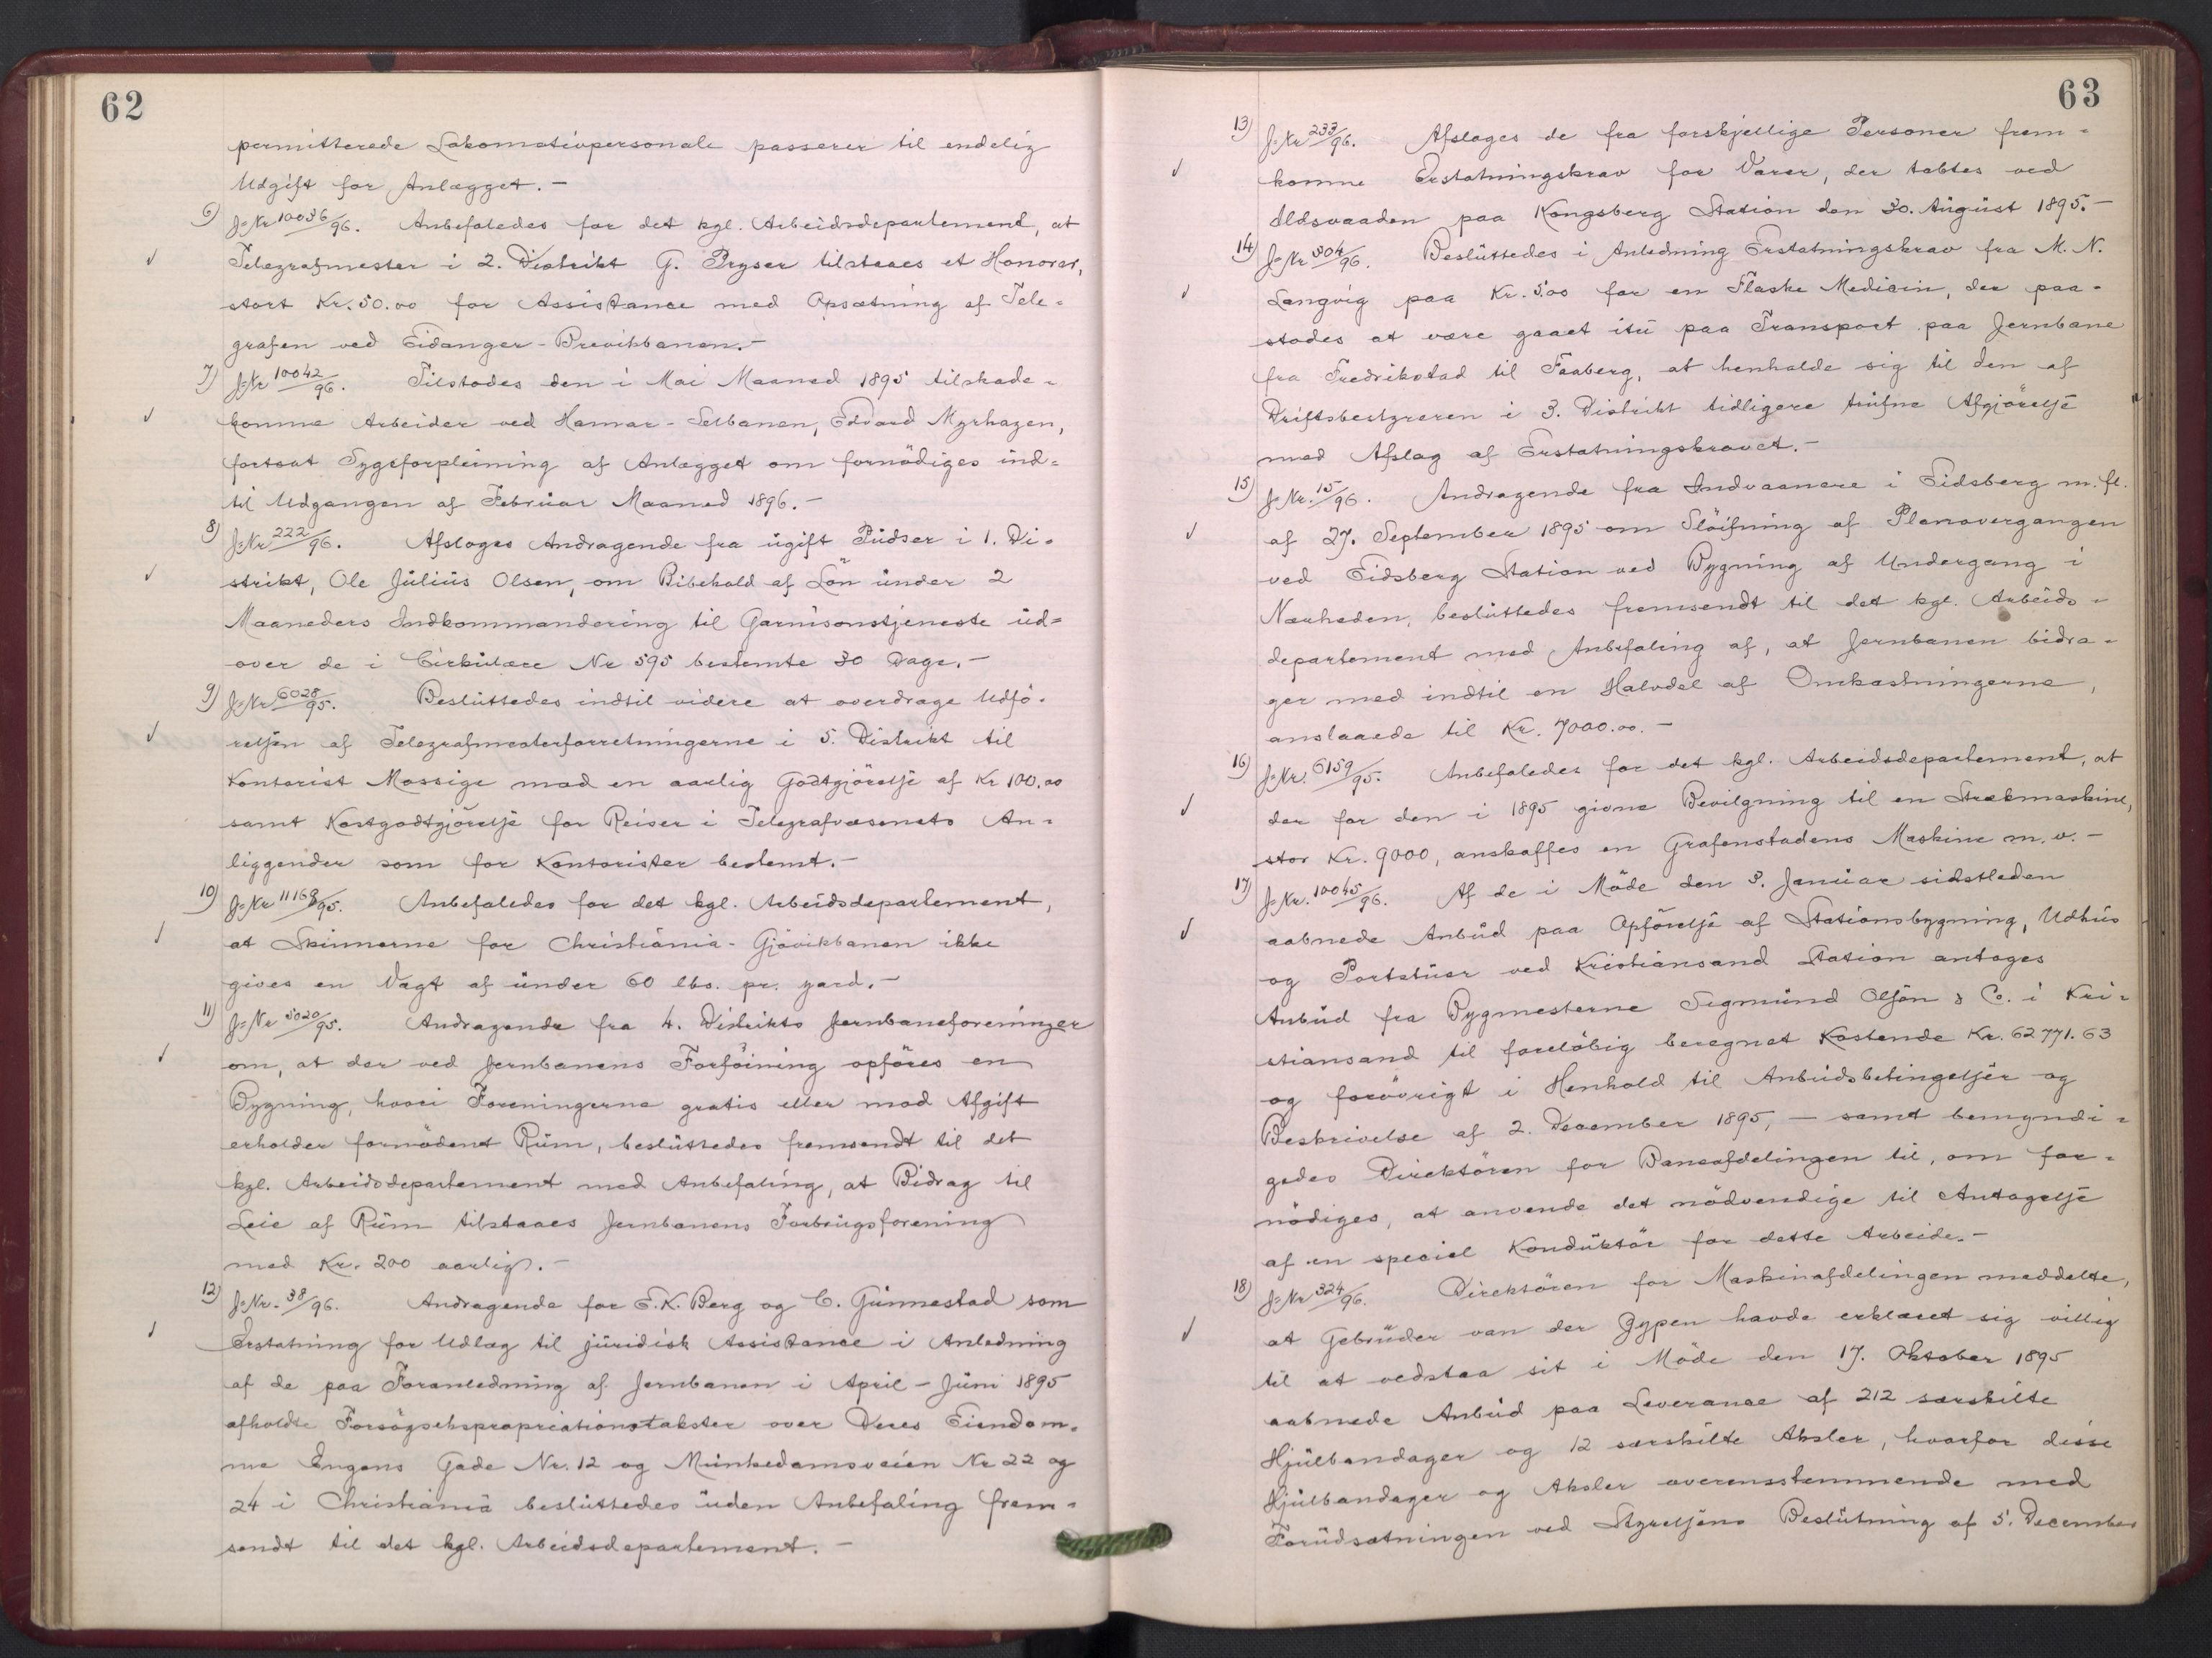 62
permitterede Lokomotivpersonale passerer til endelig
Udgift for Anlægget.-
6) J=Nr 10036/96. Anbefaledes for det kgl. Arbeidsdepartement, at
Telegrafmester i 2. Distrikt G. Pryser tilstaaes et Honorar,
stort Kr. 50.00 for Assistance med Opsætning af Tele=
grafen ved Eidanger-Brevikbanen.-
7) J=Nr 10042/96. Tilstodes den i Mai Maaned 1895 tilskade=
komne Arbeider ved Hamar-Selbanen, Edvard Myrhagen,
fortsat Sygeforpleining af Anlægget om fornødiges ind=
til Udgangen af Februar Maaned 1896.-
8) J=Nr 222/96. Afsloges Andragende fra ugift Pudser i 1. Di=
strikt, Ole Julius Olsen, om Bibehold af Løn under 2
Maaneders Indkommandering til Garnisonstjeneste ud=
over de i Cirkulære Nr 595 bestemte 30 Dage.-
9) J=Nr 6028/95. Besluttedes indtil videre at overdrage Udfø=
relsen af Telegrafmesterforretningerne i 5. Distrikt til
Kontorist Mossige mod en aarlig Godtgjørelse af Kr 100.00
samt Kostgodtgjørelse for Reiser i Telegrafvæsenets An=
liggender som for Kontorister bestemt.-
10) J=Nr 11168/95. Anbefaledes for det kgl. Arbeidsdepartement,
at Skinnerne for Christiania-Gjøvikbanen ikke
gives en Vægt af under 60 lbs. pr. yard.-
11) J=Nr 5020/95. Andragende fra 4. Distrikts Jernbaneforeninger
om, at der ved Jernbanens Forføining opføres en
Bygning, hvori Foreningerne gratis eller mod Afgift
erholder fornødent Rum, besluttedes fremsendt til det
kgl. Arbeidsdepartement med Anbefaling, at Bidrag til
Leie af Rum tilstaaes Jernbanens Forbrugsforening
med Kr. 200 aarlig.-
12) J=Nr. 38/96. Andragende for E. K. Berg og C. Gunnestad som
Erstatning for Udlæg til juridisk Assistance i Anledning
af de paa Foranledning af Jernbanen i April-Juni 1895
afholdte Forsøgsekspropriationstakster over Deres Eiendom=
me Engens Gade Nr. 12 og Munkedamsveien Nr 22 og
24 i Christiania besluttedes uden Anbefaling frem=
sendt til det kgl. Arbeidsdepartement.-
63
13) J=Nr 233/96. Afsloges de fra forskjellige Personer frem=
komne Erstatningskrav for Varer, der tabtes ved
Ildsvaaden paa Kongsberg Station den 30. August 1895.-
14) J=Nr 304/96. Besluttedes i Anledning Erstatningskrav fra M. N.
Langvig paa Kr. 5.00 for en Flaske Medicin, der paa=
stodes at være gaaet itu paa Transport paa Jernbane
fra Fredrikstad til Faaberg, at henholde sig til den af
Driftsbestyreren i 3. Distrikt tidligere trufne Afgjørelse
med Afslag af Erstatningskravet.-
15) J=Nr. 15/96. Andragende fra Indvaanere i Eidsberg m. fl.
af 27. September 1895 om Sløifning af Planovergangen
ved Eidsberg Station ved Bygning af Undergang i
Nærheden, besluttedes fremsendt til det kgl. Arbeids=
departement med Anbefaling af, at Jernbanen bidra=
ger med indtil en Halvdel af Omkostningerne,
anslaaede til Kr. 7000.00.-
16) J=Nr. 6159/95. Anbefaledes for det kgl. Arbeidsdepartement, at
der for den i 1895 givne Bevilgning til en Strækmaskine,
stor Kr. 9000, anskaffes en Grafenstadens Maskine m. v.-
17) J=Nr. 10045/96. Af de i Møde den 3. Januar sidstleden
aabnede Anbud paa Opførelse af Stationsbygning, Udhus
og Portstuer ved Kristiansand Station antoges
Anbud fra Bygmesterne Sigmund Olsen & Co. i Kri=
stiansand til foreløbig beregnet Kostende Kr. 62771.63
og forøvrigt i Henhold til Anbudsbetingelser og
Beskrivelse af 2. December 1895, - samt bemyndi=
gedes Direktøren for Baneafdelingen til, om for=
nødiges, at anvende det nødvendige til Antagelse
af en speciel Konduktør for dette Arbeide.-
18) J=Nr 324/96. Direktøren for Maskinafdelingen meddelte,
at Gebrüder van der Zypen havde erklæret sig villig
til at vedstaa sit i Møde den 17. Oktober 1895
aabnede Anbud paa Leverance af 212 særskilte
Hjulbandager og 12 særskilte Aksler, hvorfor disse
Hjulbandager og Aksler overensstemmende med
Forudsætningen ved Styrelsens Beslutning af 5. December